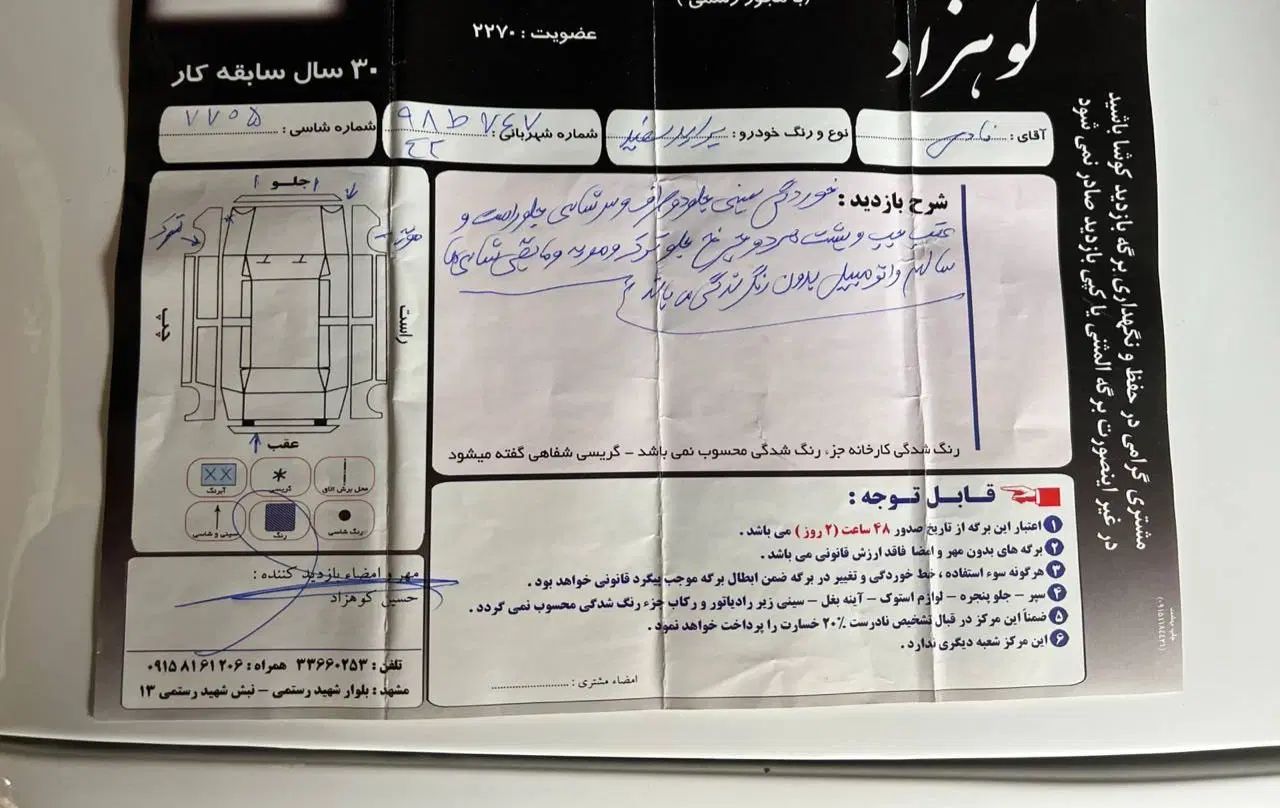 (با مجوز رسمی)
کوهزاد
عضویت : ۲۲۷۰
۳۰ سال سابقه کار
آقای :
نوع و رنگ خودرو : سفید
شماره شهربانی : ۹۸ ط ۷۴۷
شماره شاسی : ۷۷۰۵
شرح بازدید : خوردگی سینی جلو و سرشاسی جلو راست و
عقب چپ و پشت هر دو چرخ جلو ترک و مویه و مابقی شاسی‌ها
سالم و اتومبیل بدون رنگ‌زندگی می باشد
رنگ شدگی کارخانه جزء رنگ شدگی محسوب نمی باشد - گریسی شفاهی گفته میشود
جلو
راست
چپ
ترک
مویه
عقب
محل برش اتاق
گریسی
آبرنگ
رنگ شاسی
رنگ
سینی و شاسی
قابل توجه :
۱ اعتبار این برگه از تاریخ صدور ۴۸ ساعت (۲ روز) می باشد .
۲ برگه های بدون مهر و امضا فاقد ارزش قانونی می باشد .
۳ هرگونه سوء استفاده ، خط خوردگی و تغییر در برگه ضمن ابطال برگه موجب پیگرد قانونی خواهد بود .
۴ سپر - جلو پنجره - لوازم استوک - آینه بغل - سینی زیر رادیاتور و رکاب جزء رنگ شدگی محسوب نمی گردد .
۵ ضمناً این مرکز در قبال تشخیص نادرست ۲۰٪ خسارت را پرداخت خواهد نمود .
۶ این مرکز شعبه دیگری ندارد .
امضاء مشتری :
مهر و امضاء بازدید کننده :
حسین کوهزاد
تلفن : ۳۳۶۶۰۲۵۳ همراه : ۰۹۱۵۸۱۶۱۲۰۶
مشهد : بلوار شهید رستمی - نبش شهید رستمی ۱۳
مشتری گرامی در حفظ و نگهداری برگه بازدید کوشا باشید
در غیر اینصورت برگه المثنی یا کپی بازدید صادر نمی شود